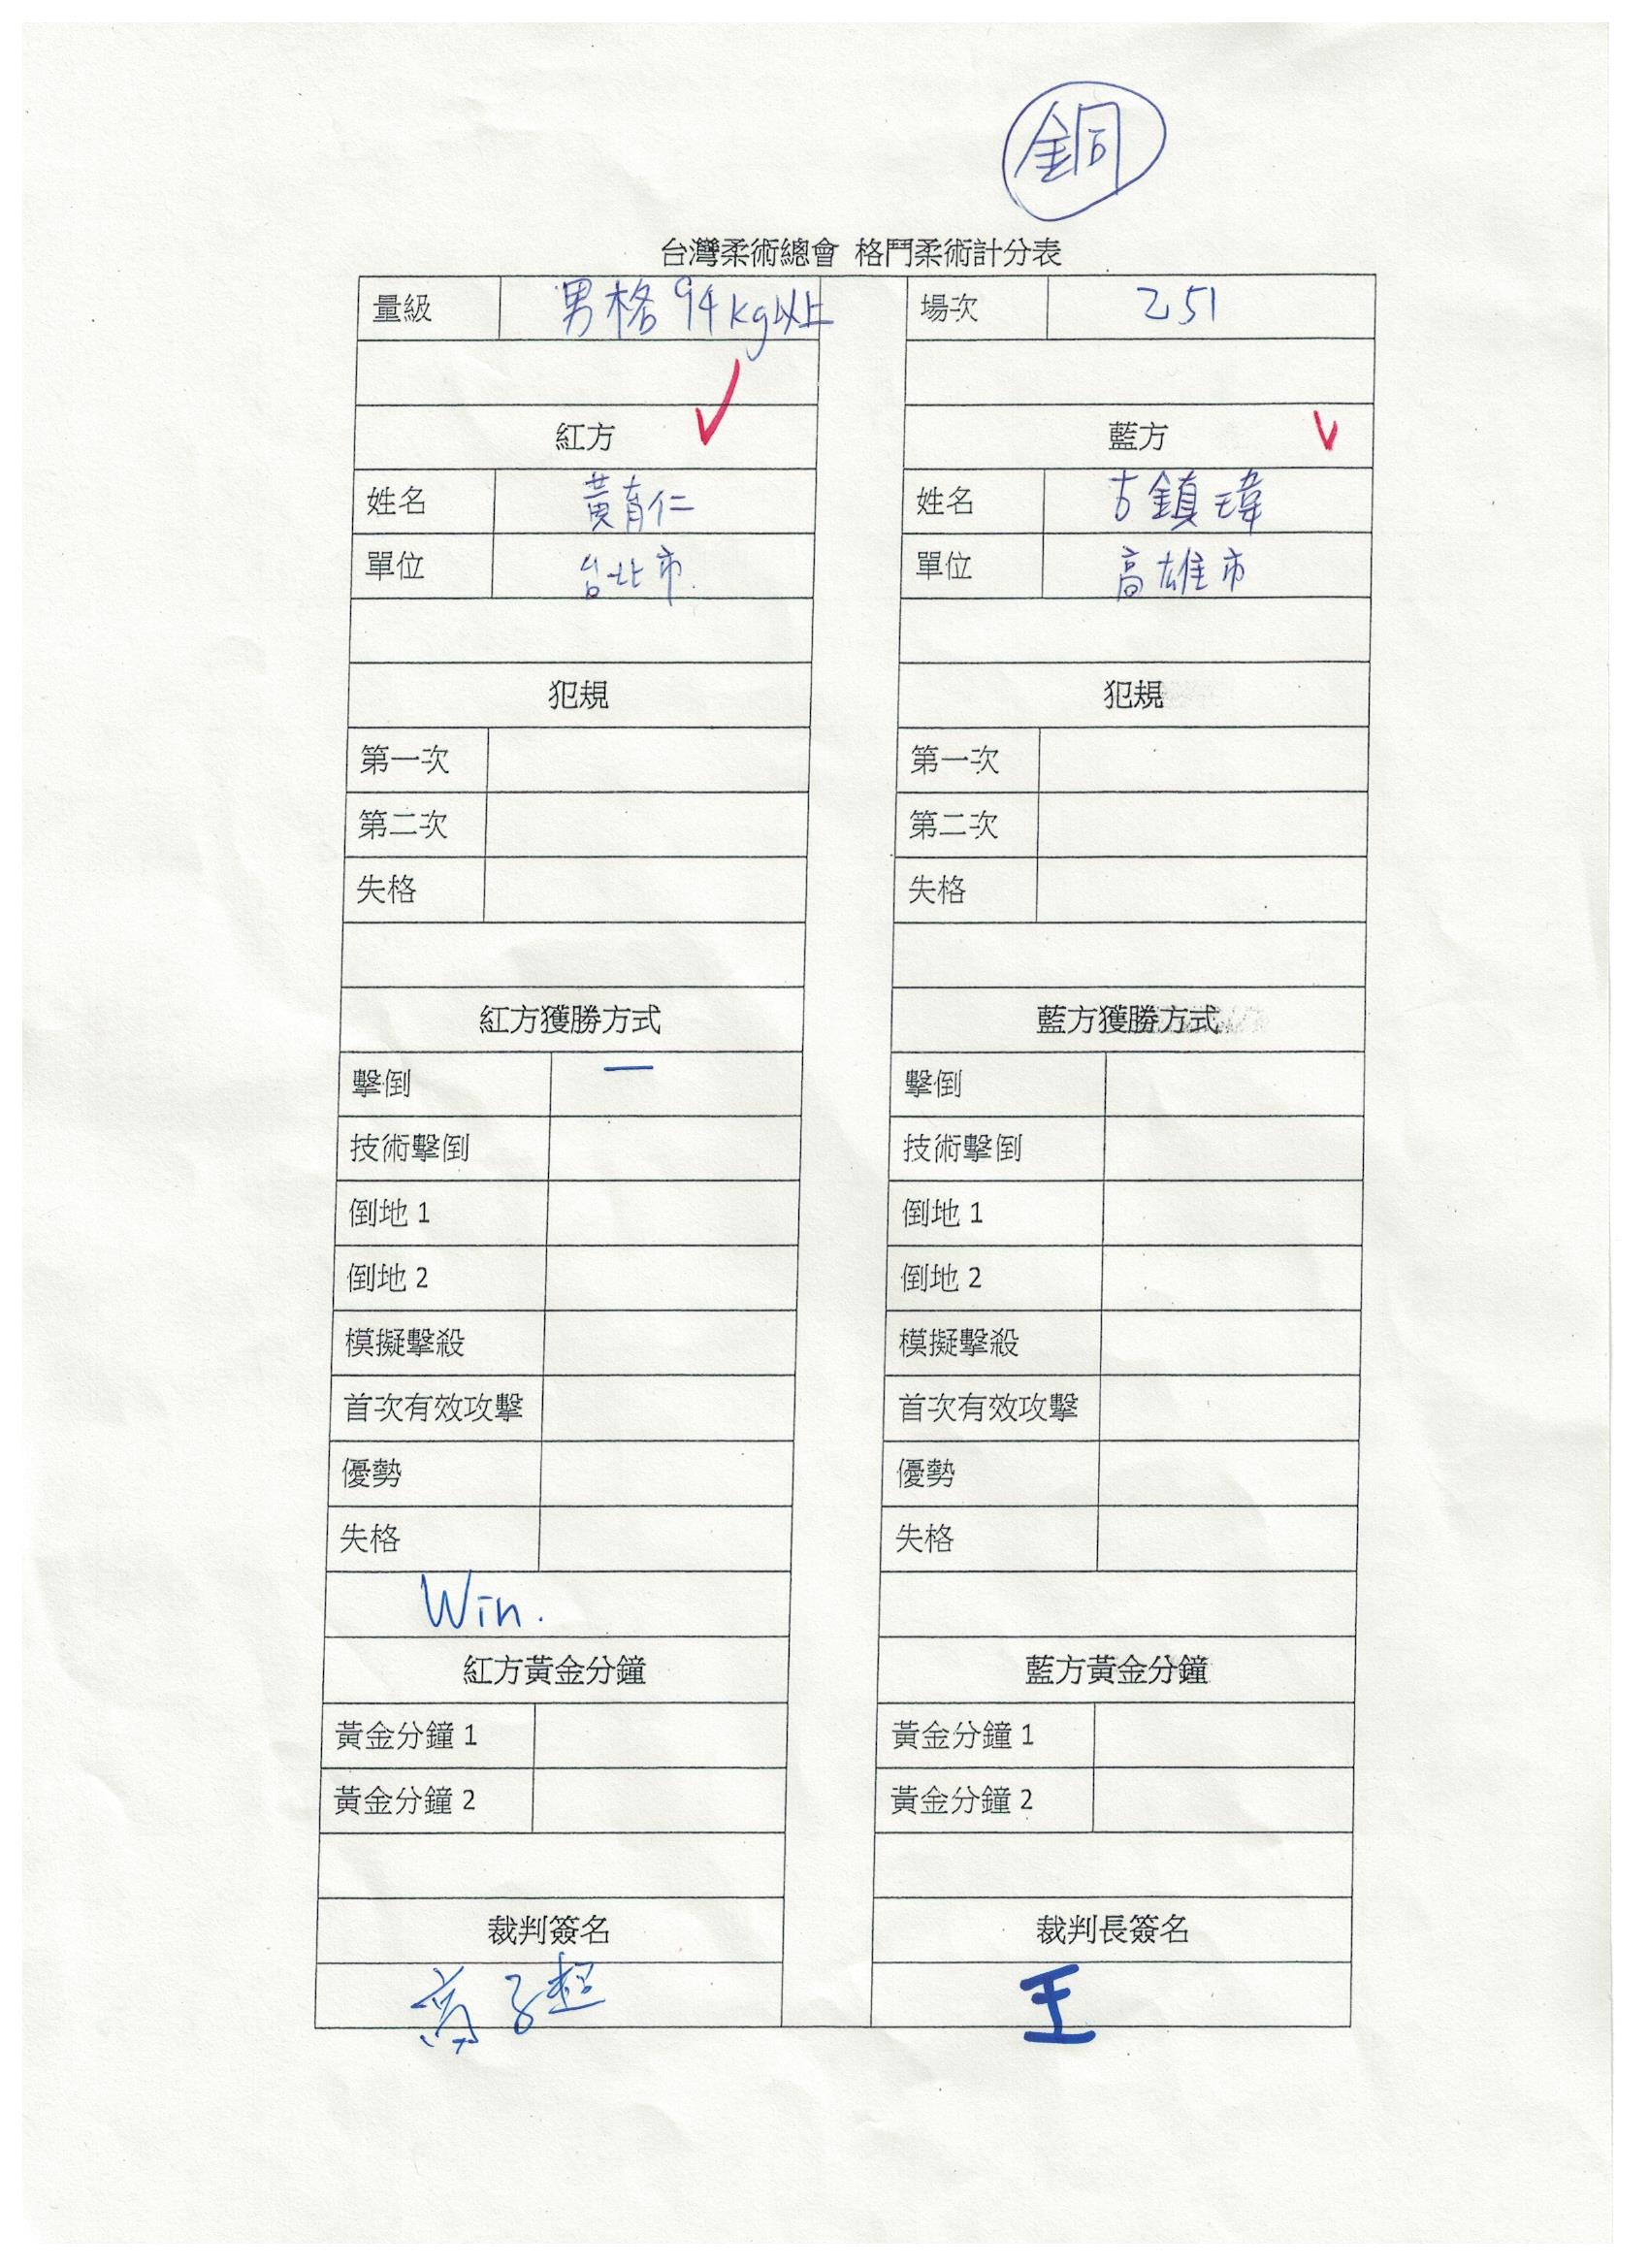 銅
台灣柔術總會 格鬥柔術計分表
量級 男格94kg以上 場次 251
紅方 藍方
姓名 黃育仁 姓名 古鎮瑋
單位 台北市 單位 高雄市
犯規 犯規
第一次 第一次
第二次 第二次
失格 失格
紅方獲勝方式 藍方獲勝方式
擊倒 一 擊倒
技術擊倒 技術擊倒
倒地 1 倒地 1
倒地 2 倒地 2
模擬擊殺 模擬擊殺
首次有效攻擊 首次有效攻擊
優勢 優勢
失格 失格
Win.
紅方黃金分鐘 藍方黃金分鐘
黃金分鐘 1 黃金分鐘 1
黃金分鐘 2 黃金分鐘 2
裁判簽名 裁判長簽名
王